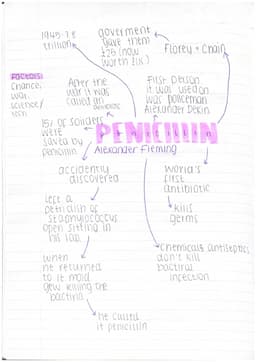 1945 · 7.8
trillion
goverment
gave them
£25 (now
worth £1k)
Florey + Chain
FACTORS:
chance,
war,
science/
tech
After the
war it was
called an
antibiotic
First person
it was used on
was policeman
Alexander
15% of soliders
were
saved by
penicillin
PENICILLIN
Alexander Fleming
accidently
discovered
World's
first
antibiotic
Left a
petridish of
staphylococcus
open sitting in
his lab
kills
germs
Chemicals antiseptics
don't kill
bactiral
infection
when
he returned
to it mold
grew killing the
bactiria
he called
it penicillin